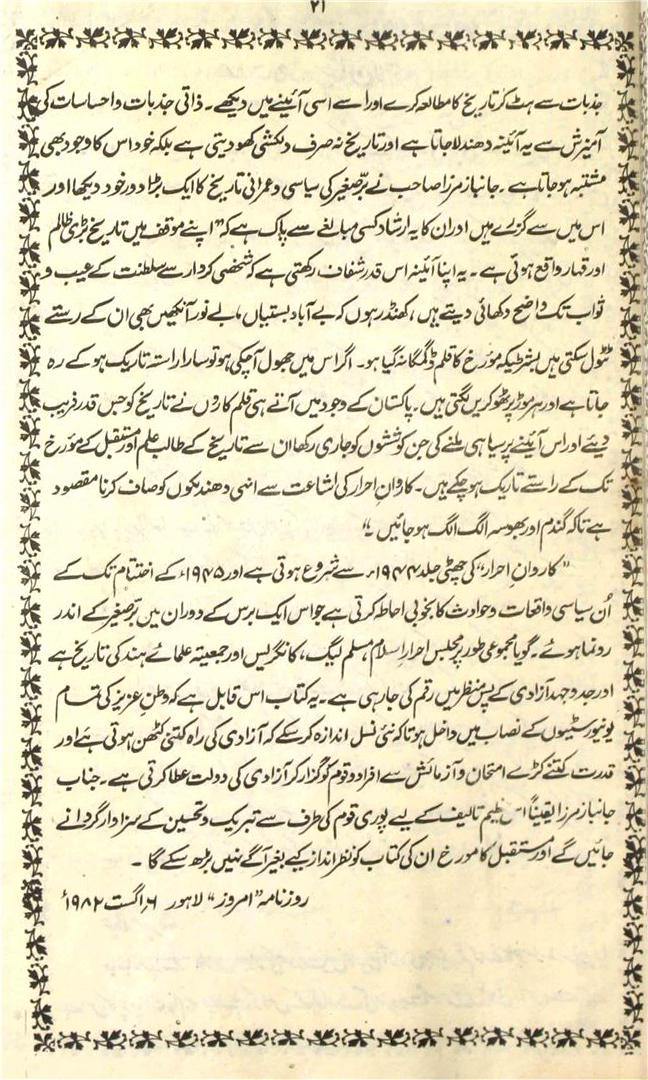 ۲۱
جذبات سے ہٹ کر تاریخ کا مطالعہ کرے اور اسے اسی آئینے میں دیکھے۔ ذاتی جذبات و احساسات کی
آمیزش سے یہ آئینہ دھندلا جاتا ہے اور تاریخ نہ صرف دلکشی کھو دیتی ہے بلکہ خود اس کا وجود بھی
مشتبہ ہو جاتا ہے۔ جانباز مرزا صاحب نے برّصغیر کی سیاسی و عمرانی تاریخ کا ایک بڑا دور خود دیکھا اور
اس میں سے گزرے ہیں اور ان کا یہ ارشاد کسی مبالغے سے پاک ہے کہ "اپنے موقف میں تاریخ بڑی ظالم
اور قہار واقع ہوئی ہے۔ یہ اپنا آئینہ اس قدر شفاف رکھتی ہے کہ شخصی کردار سے سلطنت کے عیب و
ثواب تک واضح دکھائی دیتے ہیں، کھنڈر ہوں کہ بے آباد بستیاں، بے نور آنکھیں بھی ان کے رستے
ٹٹول سکتی ہیں بشرطیکہ مؤرخ کا قلم ڈگمگا نہ گیا ہو۔ اگر اس میں جھول آ چکی ہو تو سارا راستہ تاریک ہو کے رہ
جاتا ہے اور ہر موڑ پر ٹھوکریں لگتی ہیں۔ پاکستان کے وجود میں آتے ہی قلم کاروں نے تاریخ کو جس قدر فریب
دیئے اور اس آئینے پر سیاہی ملنے کی جن کوششوں کو جاری رکھا ان سے تاریخ کے طالب علم اور مستقبل کے مؤرخ
تک کے راستے تاریک ہو چکے ہیں۔ کاروانِ احرار کی اشاعت سے انہی دھندلکوں کو صاف کرنا مقصود
ہے تاکہ گندم اور بھوسہ الگ الگ ہو جائیں۔"
"کاروانِ احرار" کی چھٹی جلد ۱۹۴۴ء سے شروع ہوتی ہے اور ۱۹۴۵ء کے اختتام تک کے
اُن سیاسی واقعات و حوادث کا بخوبی احاطہ کرتی ہے جو اس ایک برس کے دوران میں برّصغیر کے اندر
رونما ہوئے۔ گویا مجموعی طور پر مجلس احرار اسلام، مسلم لیگ، کانگریس اور جمعیتہ علمائے ہند کی تاریخ ہے
اور جدوجہد آزادی کے پس منظر میں رقم کی جا رہی ہے۔ یہ کتاب اس قابل ہے کہ وطنِ عزیز کی تمام
یونیورسٹیوں کے نصاب میں داخل ہو تاکہ نئی نسل اندازہ کر سکے کہ آزادی کی راہ کتنی کٹھن ہوتی ہے اور
قدرت کتنے کڑے امتحان و آزمائش سے افراد و قوم کو گزار کر آزادی کی دولت عطا کرتی ہے۔ جناب
جانباز مرزا یقیناً اس عظیم تالیف کے لیے پوری قوم کی طرف سے تبریک و تحسین کے سزاوار گردانے
جائیں گے اور مستقبل کا مورخ ان کی کتاب کو نظر انداز کیے بغیر آگے نہیں بڑھ سکے گا۔
روزنامہ "امروز" لاہور ۶؍اگست ۱۹۸۲ء